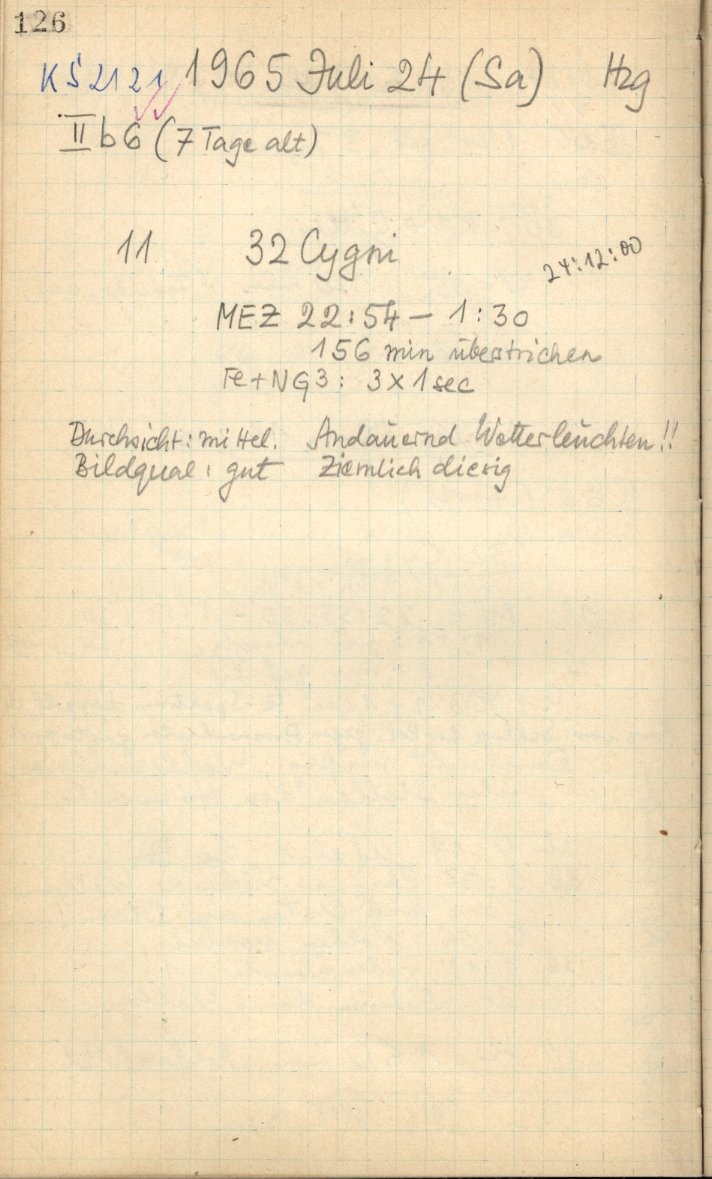 126
KŠ 2121 1965 Juli 24 (Sa) Hzg
II b 6 (7 Tage alt)
11 32 Cygni 24:12:00
MEZ 22:54 – 1:30
156 min überstrichen
Fe+NG3: 3×1 sec
Durchsicht: mittel. Andauernd Wetterleuchten!!
Bildqual: gut Ziemlich diesig